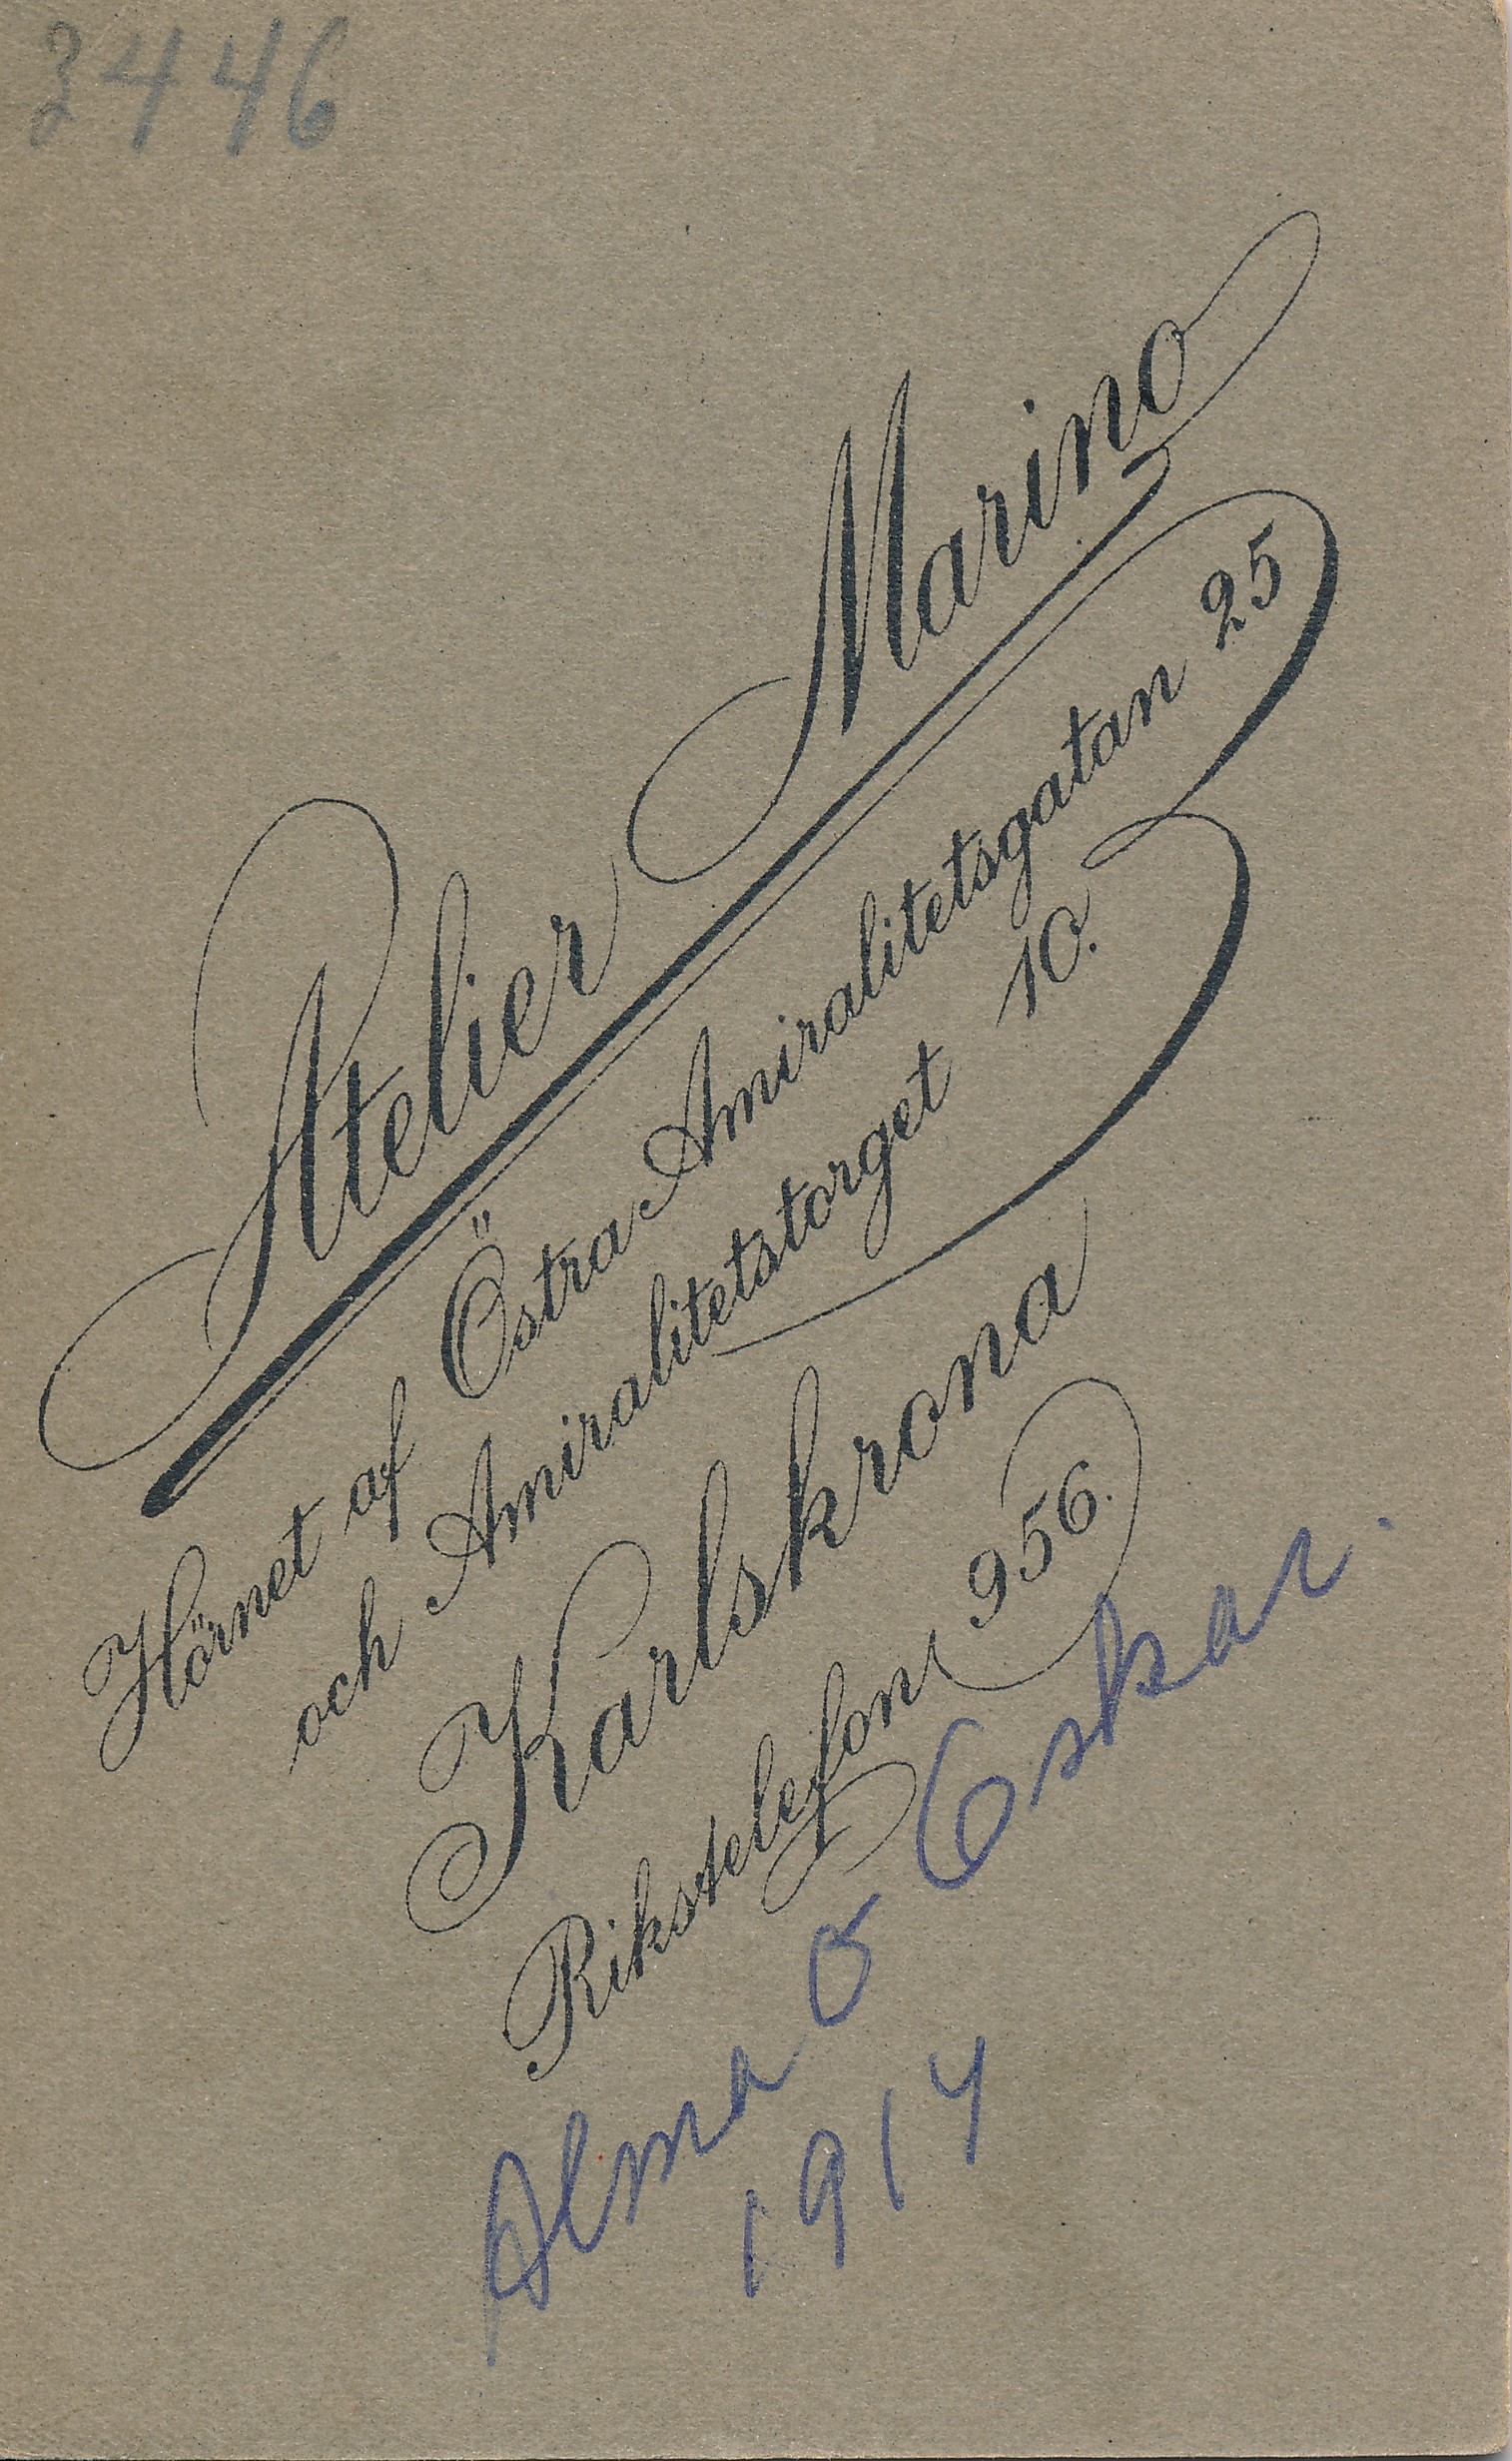 3446
Atelier Marino
Hörnet af Östra Amiralitetsgatan 25
och Amiralitetstorget 10.
Karlskrona
Rikstelefon 956.
Alma o Oskar.
1914